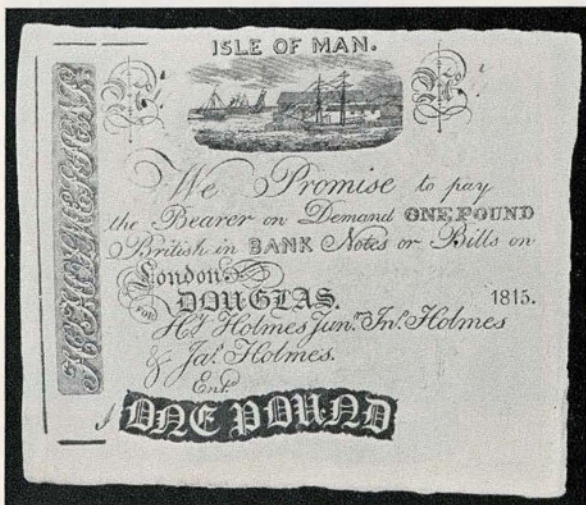 ISLE OF MAN.
No. No.
We Promise to pay
the Bearer on Demand ONE POUND
British in BANK Notes or Bills on
London.
DOUGLAS. 1815.
FOR Hy. Holmes Junr. Jno. Holmes
& Jas. Holmes.
Entd.
ONE POUND